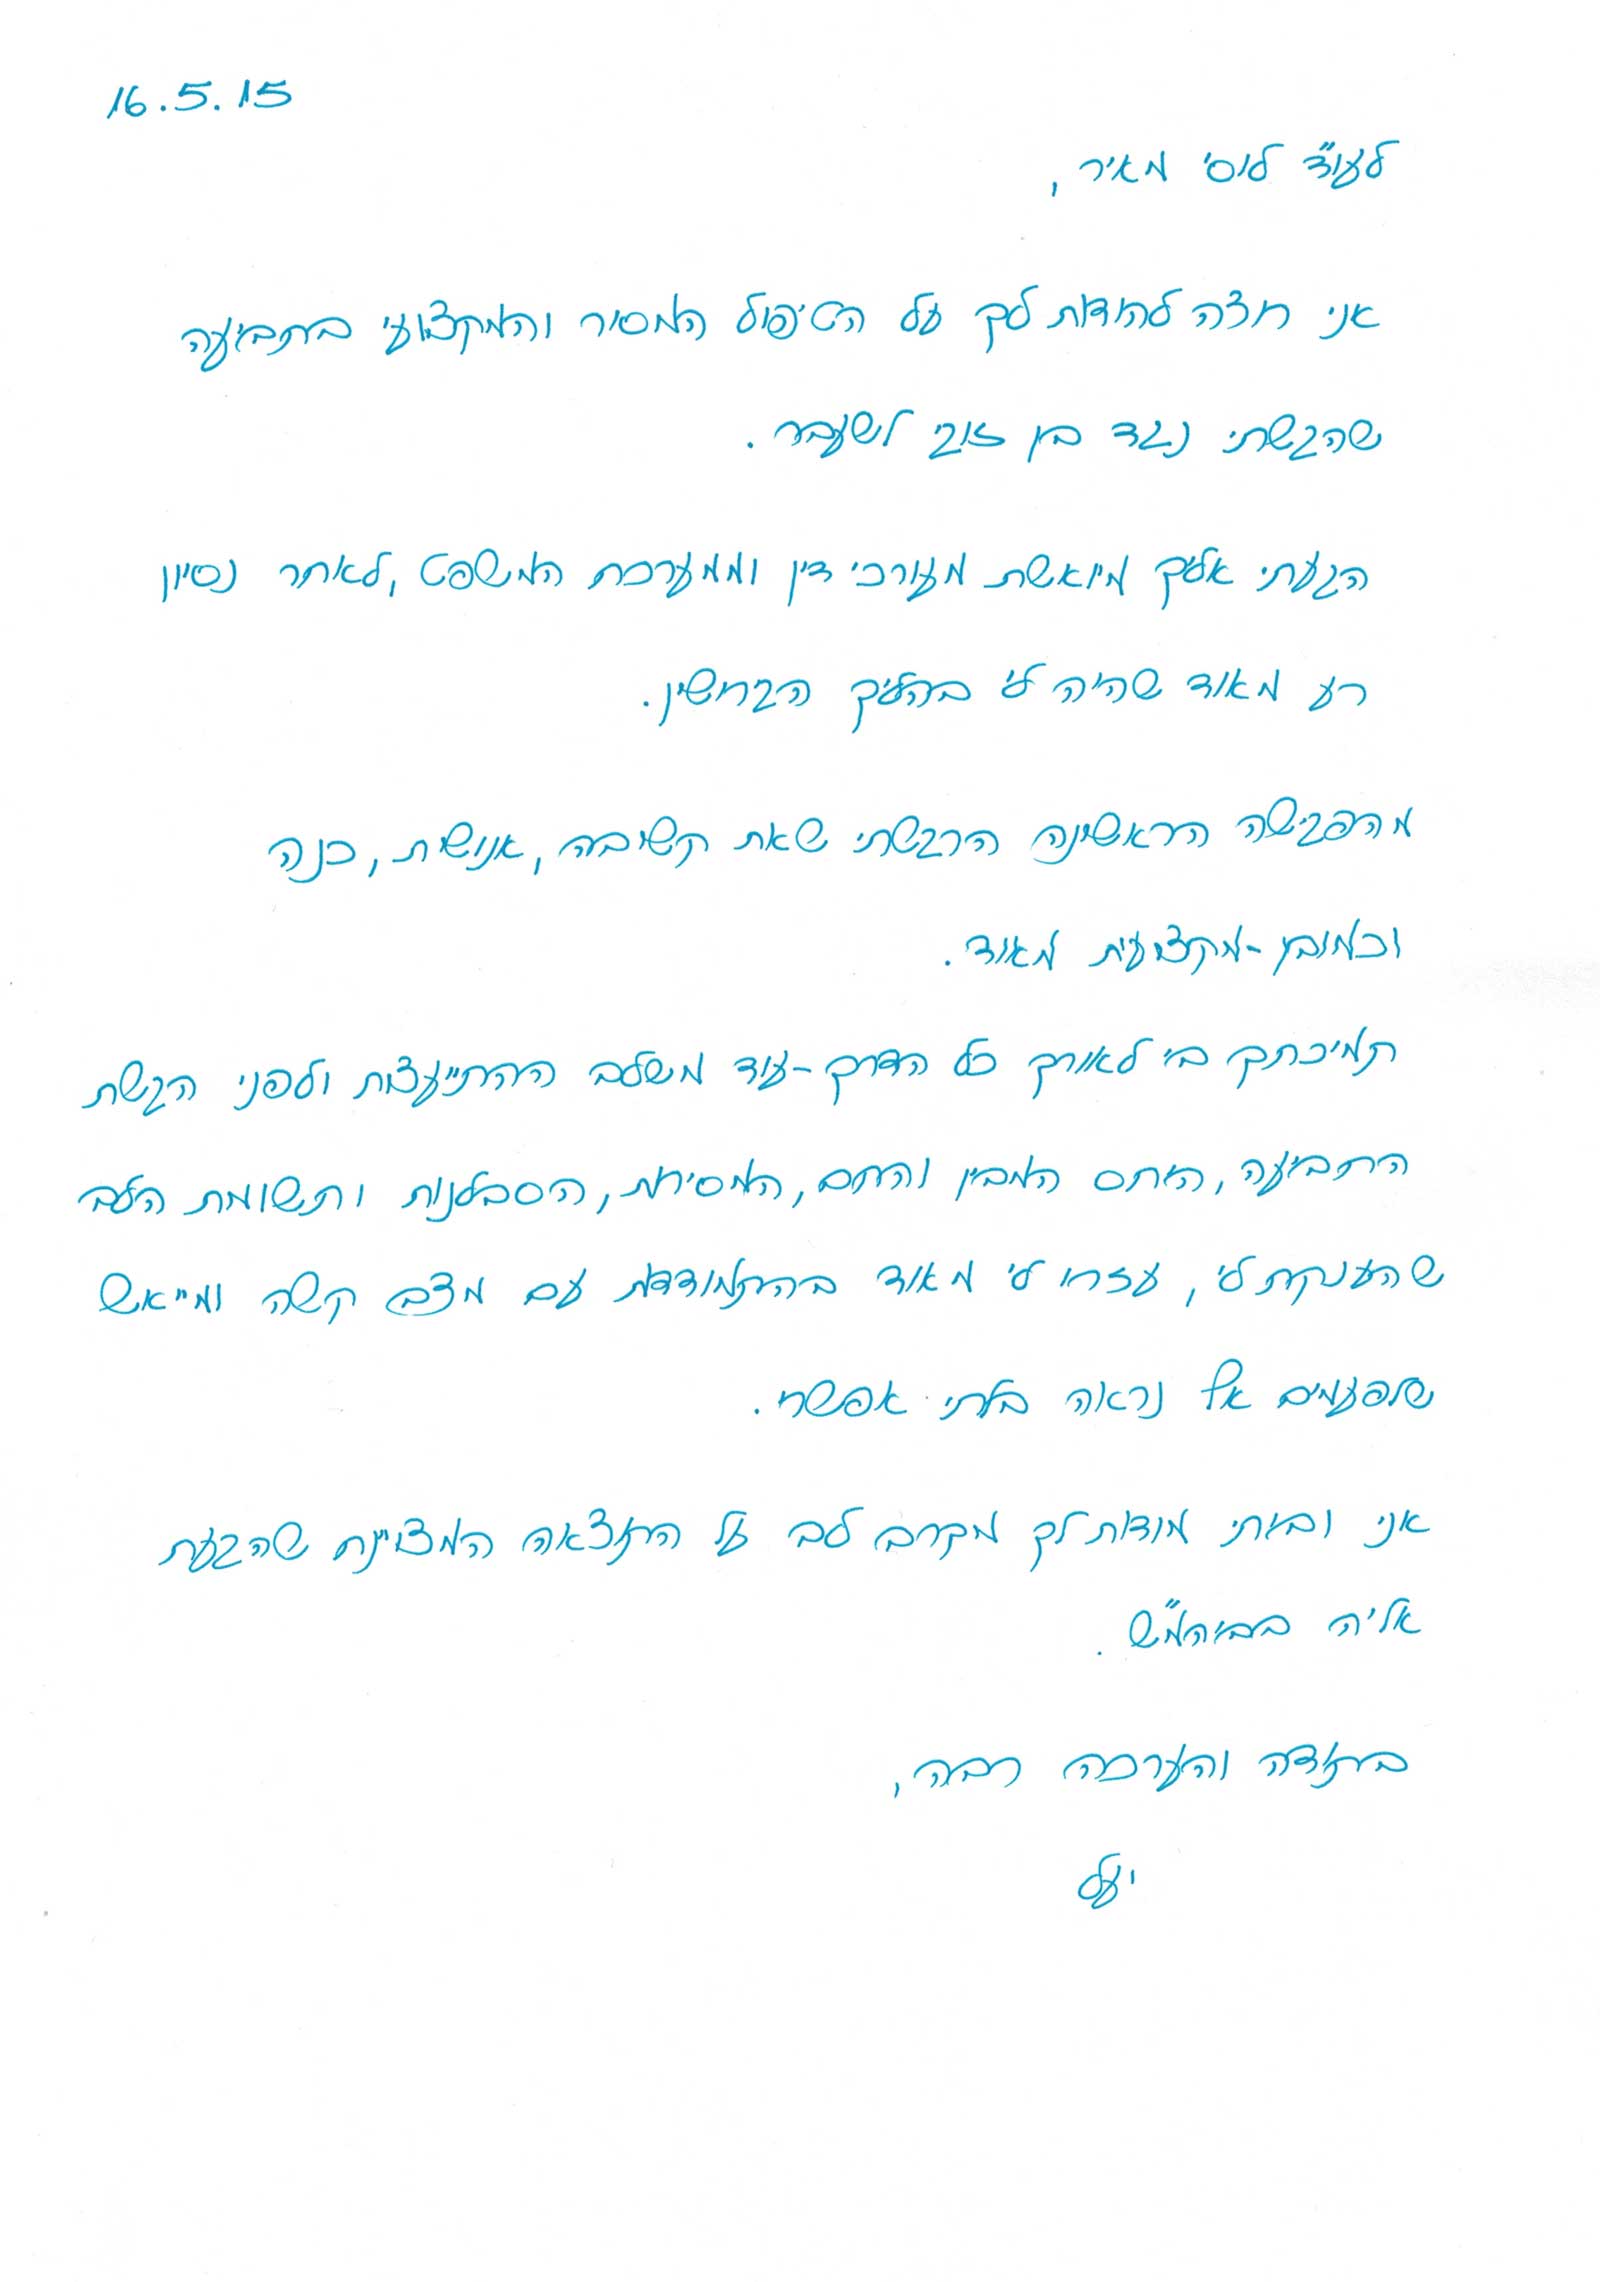 16.5.15
לעו"ד לוסי מאיר,
אני רוצה להודות לך על הטיפול המסור והמקצועי בתביעה
שהגשתי נגד בן זוגי לשעבר.
הגעתי אליך מיואשת מעורכי דין וממערכת המשפט, לאחר נסיון
רע מאוד שהיה לי בהליך הגירושין.
מהפגישה הראשונה הרגשתי שאת קשובה, אנושית, כנה
וכמובן - מקצועית מאוד.
תמיכתך בי לאורך כל הדרך - עוד משלב ההתייעצות ולפני הגשת
התביעה, היחס המבין והחם, המסירות, הסבלנות ותשומת הלב
שהענקת לי, עזרו לי מאוד בהתמודדות עם מצב קשה ומייאש
שלפעמים אף נראה בלתי אפשרי.
אני וביתי מודות לך מקרב לב על התוצאה המצויינת שהגעת
אליה בביהמ"ש.
בתודה והערכה רבה,
יעל